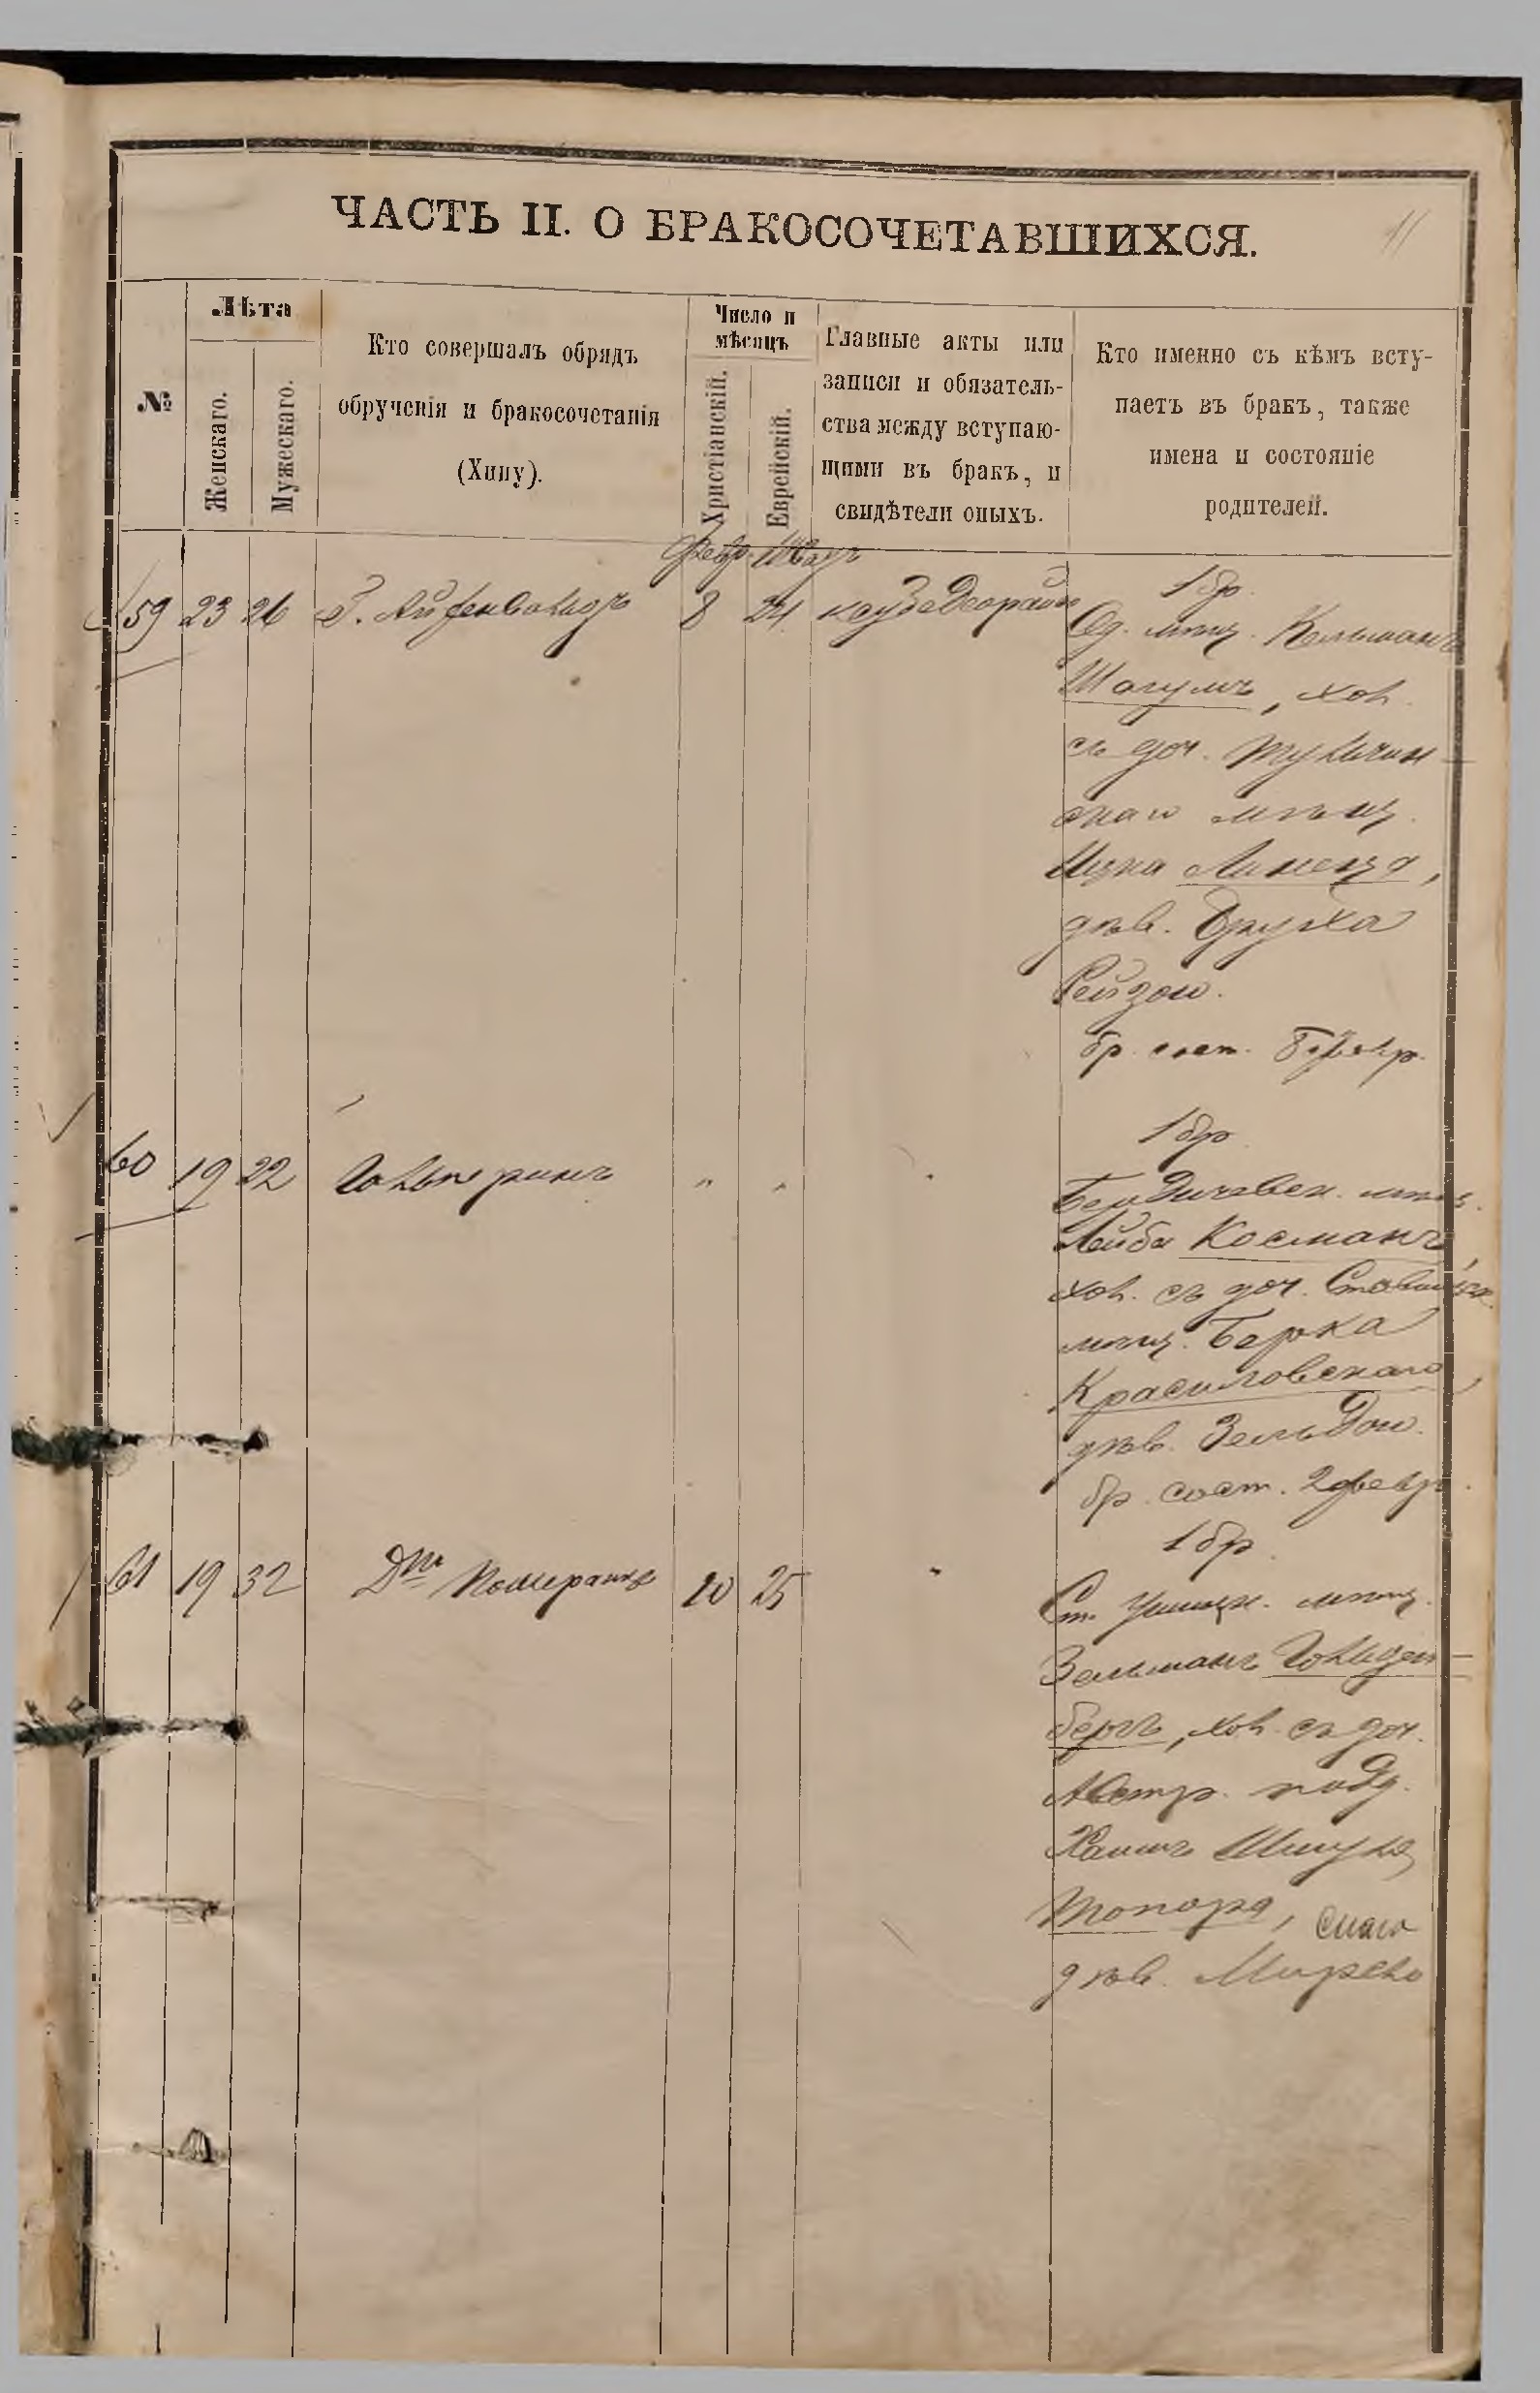 ЧАСТЬ II. О БРАКОСОЧЕТАВШИХСЯ.
11
№
Лѣта
Женскаго.
Мужескаго.
Кто совершалъ обрядъ
обрученія и бракосочетанія
(Хипу).
Число и
мѣсяцъ
Христіанскій.
Еврейскій.
Главные акты или
записи и обязатель-
ства между вступаю-
щими въ бракъ, и
свидѣтели оныхъ.
Кто именно съ кѣмъ всту-
паетъ въ бракъ, также
имена и состояніе
родителей.
Февр. Шватъ
59 23 26 8 24
1 бр.
Од. мѣщ. Кельманъ
Шагумъ, хол.
съ доч. Тульчин-
скаго мѣщ.
Ицка
дѣв. Бруха
Рейзою.
бр. сост. февр.
60 19 22 Гольперинъ " " "
1 бр.
Бердичевск. мѣщ.
Лейба Косманъ,
хол. съ доч.
мѣщ. Берка
Красиловскаго,
дѣв. Зельдою.
бр. сост. 2 февр.
61 19 32 Помераниъ 10 25 "
1 бр.
Ст. Ушицк. мѣщ.
Зельманъ Гольден-
бергъ, хол. съ доч.
Австр. подд.
Хаимъ
Топора,
дѣв.